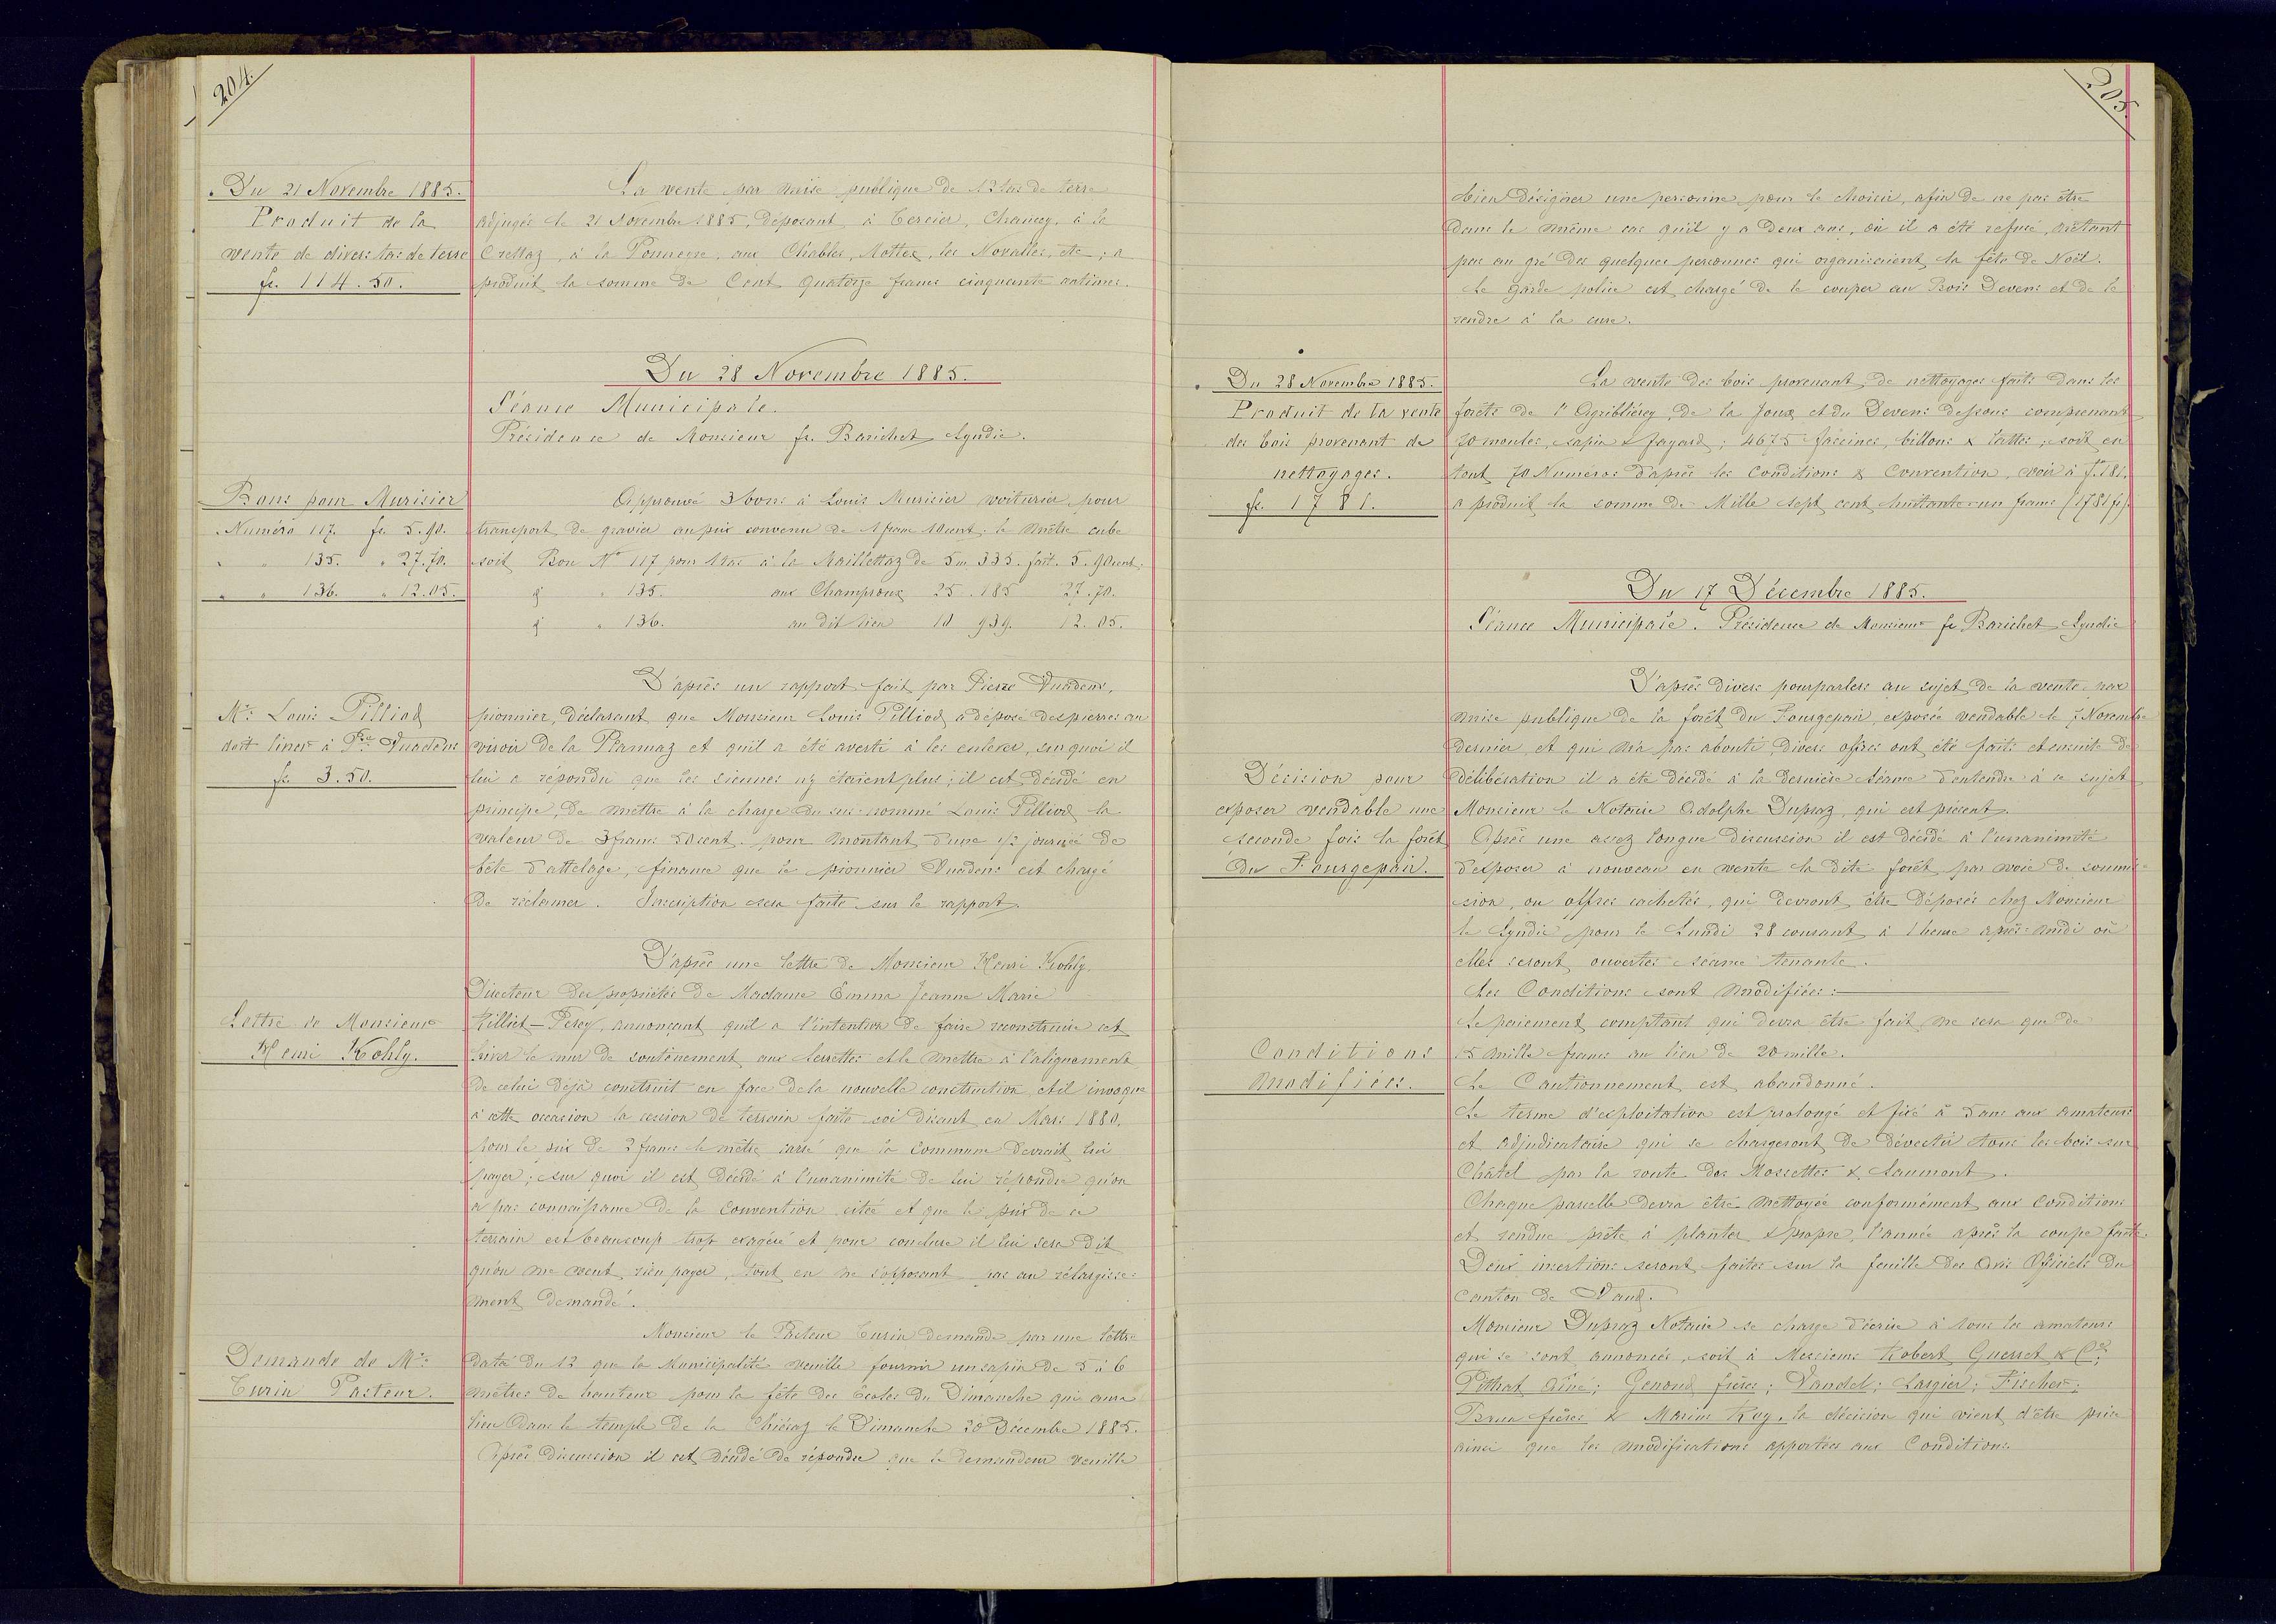 204.
Du 21 Novembre 1885.
Produit de la
vente de divers tas de terre
fr. 114.50.
La vente par mise publique de 12 tas de terre
adjugés le 21 Novembre 1885, déposant à Cercier, Chauccy, à la
Crettaz, à la Ponneyre, aux Chables, Mottex, les Novalles, etc; a
produit la somme de Cent quatorze francs cinquante centimes.
Du 28 Novembre 1885.
Séance Municipale.
Présidence de Monsieur fs. Barichet Syndic.
Bons pour Murisier
Numéro 117. fr. 5.90.
" " 135. " 27.70.
" " 136. " 12.05.
Approuvé 3 bons à Louis Murisier voiturier, pour
transport de gravier au prix convenu de 1 franc 10 cent. le mètre cube
soit Bon No 117 pour 1 tas à la Maillettaz de 5 m 335. fait. 5.90 cent.
" 135. aux Champroux 25.185 27.70.
" 136. au dit lieu 10 939. 12.05.
Mr. Louis Pilliod
doit livrer à Pre Vuadens
fr. 3.50.
D'après un rapport fait par Pierre Vuadens,
pionnier, déclarant que Monsieur Louis Pilliod a déposé des pierres au
viroir de la Plannaz et qu'il a été averti à les enlever, sur quoi il
lui a répondu que les siennes n'y étaient plus; il est décidé en
principe, de mettre à la charge du sus-nommé Louis Pilliod la
valeur de 3 francs 50 cent. pour montant d'une 1/2 journée de
bête d'attelage, finance que le pionnier Vuadens est chargé
de réclamer. Inscription sera faite sur le rapport.
Lettre de Monsieur
Henri Kohly.
D'après une lettre de Monsieur Henri Kohly
Directeur des propriétés de Madame Emma Jeanne Marie
Rilliet-Peroy, annonçant qu'il a l'intention de faire reconstruire cet
hiver le mur de soutènement aux Serrettes et le mettre à l'alignement
de celui déjà construit en face de la nouvelle construction et il invoque
à cette occasion la cession de terrain faite soi disant en Mars 1880,
pour le prix de 2 francs le mètre carré que la Commune devrait lui
payer; sur quoi il est décidé à l'unanimité de lui répondre qu'on
a pas connaissance de la convention citée et que le prix de ce
terrain est beaucoup trop exagéré et pour conclure il lui sera dit
qu'on ne veut rien payer, tout en ne s'opposant pas au rélargisse-
ment demandé.
Demande de Mr.
Turin Pasteur.
Monsieur le Pasteur Turin demande par une lettre
datée du 12 que la Municipalité veuille fournir un sapin de 5 à 6
mètres de hauteur pour la fête des Ecoles du Dimanche qui aura
lieu dans le temple de la Chiésaz le Dimanche 20 Décembre 1885.
Après discussion il est décidé de répondre que le demandeur veuille
205.
bien désigner une personne pour le choisir, afin de ne pas être
dans le même cas qu'il y a deux ans, où il a été refusé, n'étant
pas au gré des quelques personnes qui organisaient la fête de Noël.
Le garde police est chargé de le couper au Bois Devens et de le
rendre à la cure.
Du 28 Novembre 1885.
Produit de la vente
des bois provenant de
nettoyages.
fr. 1781.
La vente des bois provenant de nettoyages faits dans les
forêts de l'Agribliérey, de la Joux et du Devens dessous comprenant
20 moules, sapin & fayard; 4675 fascines, billons & lattes; soit en
tout 70 Numéros d'après les Conditions & Convention, voir à fo 181.
a produit la somme de Mille sept cent huitante-un francs (1781 fr).
Du 17 Décembre 1885.
Séance Municipale. Présidence de Monsieur fs Barichet Syndic
Décision pour
exposer vendable une
seconde fois la forêt
du Fourgepan.
D'après divers pourparlers au sujet de la vente par
mise publique de la forêt du Fourgepan, exposée vendable le 7 Novembre
dernier, et qui n'a pas abouti divers offres ont été faits et ensuite de
délibération il a été décidé à la dernière séance d'entendre à ce sujet
Monsieur le Notaire Adolphe Dupraz, qui est présent.
Après une assez longue discussion il est décidé à l'unanimité
d'exposer à nouveau en vente la dite forêt par voie de soumis-
sion, ou offres cachetés, qui devront être déposés chez Monsieur
le Syndic pour le Lundi 28 courant à 1 heure après-midi où
elles seront ouvertes séance tenante.
Conditions
modifiées.
Les Conditions sont modifiées:
Le paiement comptant qui devra être fait, ne sera que de
15 mille francs au lieu de 20 mille.
Le Cautionnement est abandonné.
Le terme d'exploitation est prolongé et fixé à 5 ans aux amateurs
et adjudicataire qui se chargeront de dévestir tous les bois sur
Châtel par la route des Mossettes & Saumont.
Chaque parcelle devra être nettoyée conformément aux Conditions
et rendue prête à planter & propre, l'année après la coupe faite.
Deux insertions seront faites sur la feuille des Avis Officiels du
Canton de Vaud.
Monsieur Dupraz Notaire se charge d'écrire à tous les amateurs
qui se sont annoncés, soit à Messieurs Robert Guerret & Cie;
Pittrat aîné; Genoud frères; Vandel; Largier; Fischer;
Brun frères & Marius Roy, la décision qui vient d'être prise
ainsi que les modifications apportées aux Conditions.